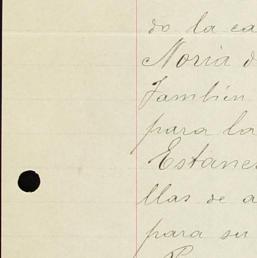 do la ca
Noria d
También
para la
Estanc
llas de a
para su